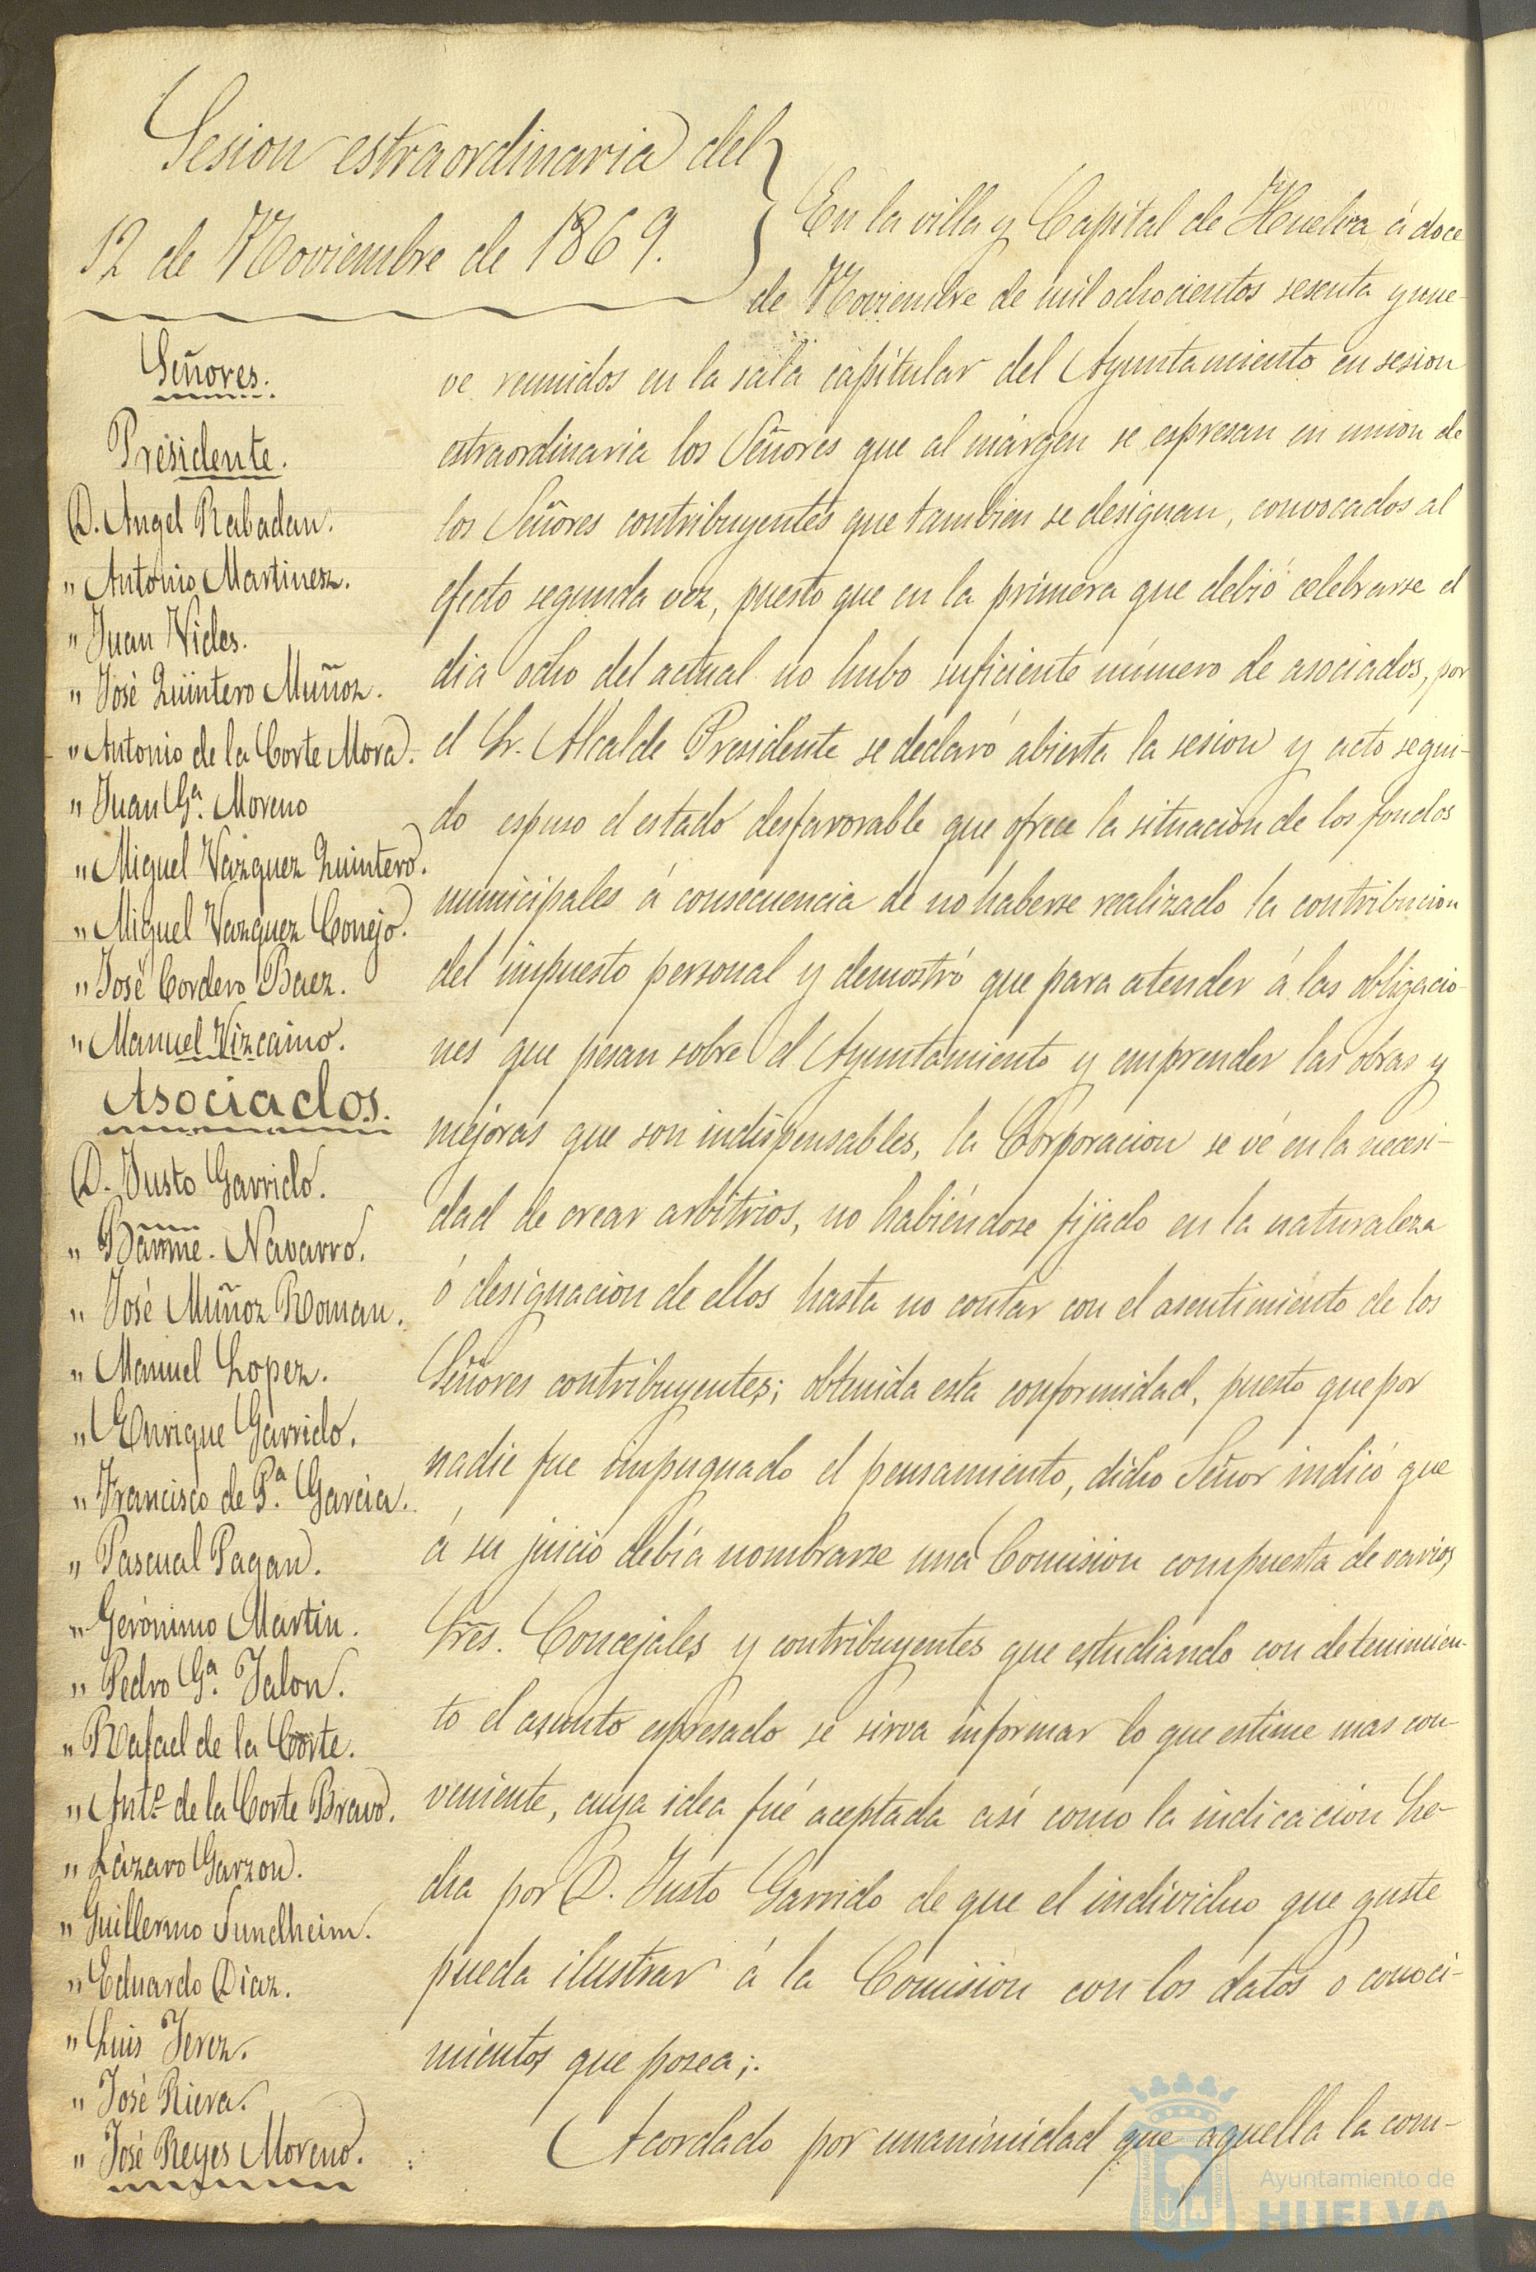 Sesion estraordinaria del
12 de Noviembre de 1869.
Señores.
Presidente.
D. Angel Rabadan.
" Antonio Martinez.
" Juan Vides.
" José Quintero Muñoz.
" Antonio de la Corte Mora.
" Juan Gª. Moreno
" Miguel Vazquez Quintero.
" Miguel Vazquez Conejo.
" José Cordero Baez.
" Manuel Vizcaino.
Asociados.
D. Justo Garrido.
" Barme. Navarro.
" José Muñoz Roman.
" Manuel Lopez.
" Enrique Garrido.
" Francisco de P.ª Garcia.
" Pascual Pagan.
" Gerónimo Martin.
" Pedro Gª. Jalon.
" Rafael de la Corte.
" Antº de la Corte Bravo.
" Lázaro Garzon.
" Guillermo Sundheim.
" Eduardo Diaz.
" Luis Jerez.
" José Riera.
" José Reyes Moreno.
En la villa y Capital de Huelva á doce
de Noviembre de mil ochocientos sesenta y nue-
ve reunidos en la sala capitular del Ayuntamiento en sesion
estraordinaria los Señores que al márgen se espresan en union de
los Señores contribuyentes que tambien se designan, convocados al
efecto segunda vez, puesto que en la primera que debió celebrarse el
dia ocho del actual no hubo suficiente número de asociados, por
el Sr. Alcalde Presidente se declaró abierta la sesion y acto segui-
do espuso el estado desfavorable que ofrece la situacion de los fondos
municipales á consecuencia de no haberse realizado la contribucion
del impuesto personal y demostró que para atender á las obligacio-
nes que pesan sobre el Ayuntamiento y emprender las obras y
mejoras que son indispensables, la Corporacion se vé en la necesi-
dad de crear arbitrios, no habiéndose fijado en la naturaleza
ó designacion de ellos hasta no contar con el asentimiento de los
Señores contribuyentes; obtenida esta conformidad, puesto que por
nadie fue impugnado el pensamiento, dicho Señor indicó que
á su juicio debia nombrarse una Comision compuesta de varios
Sres. Concejales y contribuyentes que estudiando con detenimien-
to el asunto espresado se sirva informar lo que estime mas con-
veniente, cuya idea fué aceptada así como la indicacion he-
cha por D. Justo Garrido de que el individuo que guste
pueda ilustrar á la Comision con los datos ó conoci-
mientos que posea;.
Acordado por unanimidad que aquella la com-
Ayuntamiento de
HUELVA